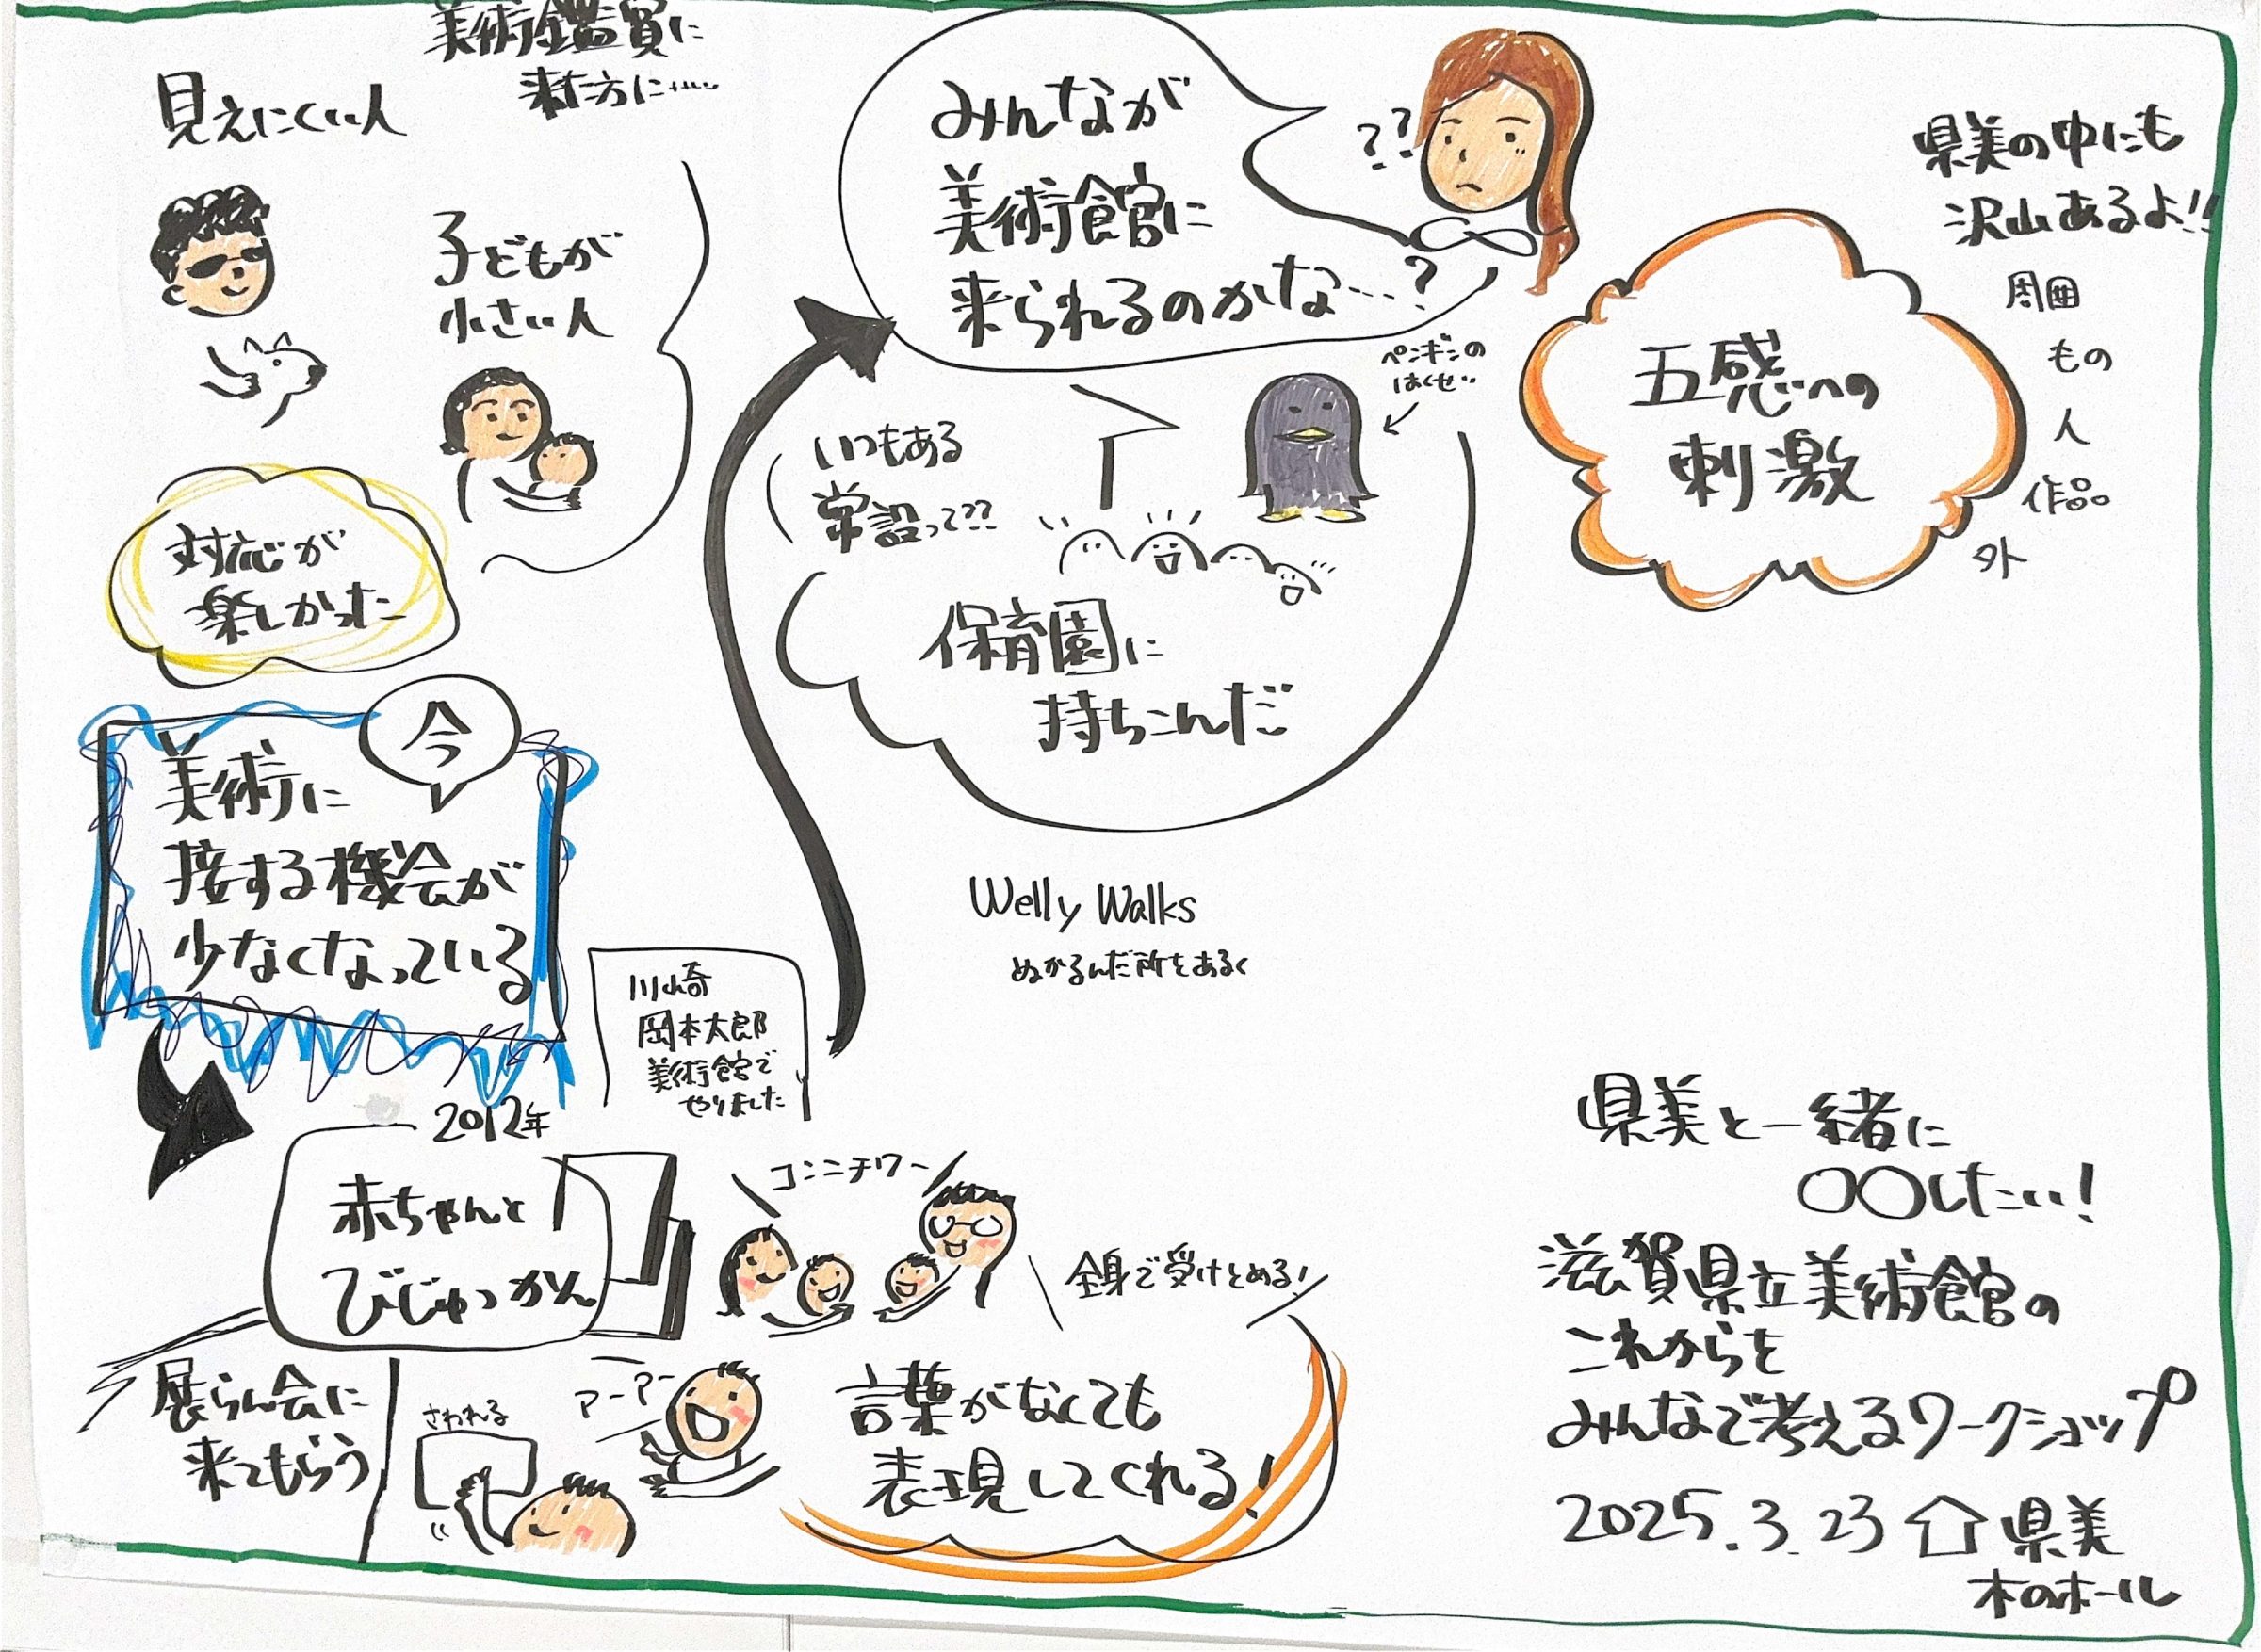 美術鑑賞に
来た方に……
見えにくい人
子どもが
小さい人
対応が
楽しかった
今
美術に
接する機会が
少なくなっている
2012年
赤ちゃんと
びじゅつかん
川崎
岡本太郎
美術館で
やりました
展らん会に
来てもらう
さわれる
アーアー
コンニチワー
全身で受けとめる!
言葉がなくても
表現してくれる!
みんなが
美術館に
来られるのかな…?
??
ペンギンの
はくせい
いつもある
常設って??
保育園に
持ちこんだ
Welly Walks
ぬかるんだ所をあるく
県美の中にも
沢山あるよ!!
周囲
もの
人
作品
外
五感への
刺激
県美と一緒に
〇〇したい!
滋賀県立美術館の
これからを
みんなで考えるワークショップ
2025.3.23 県美
木のホール